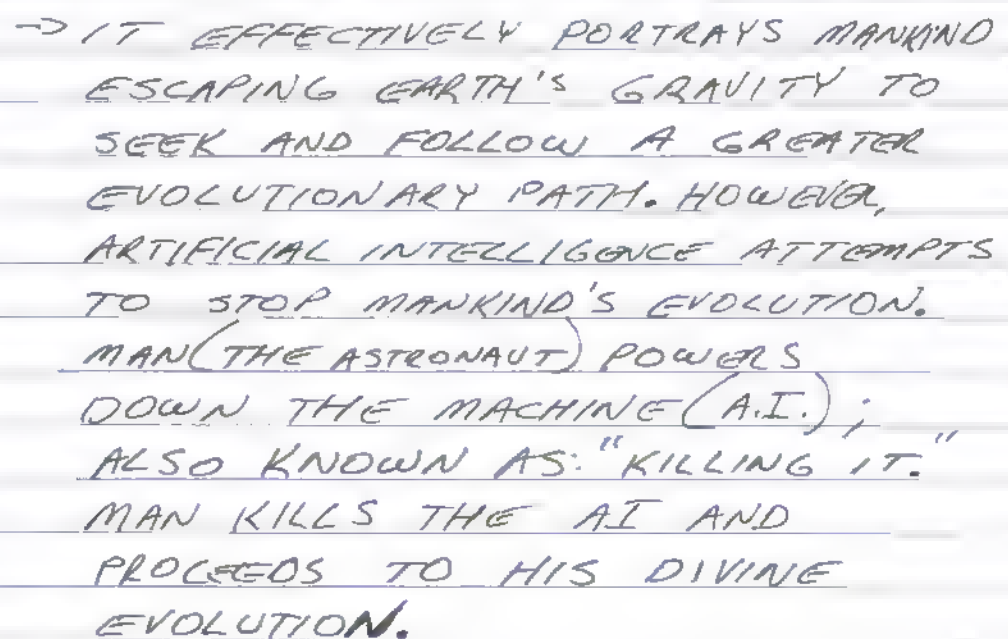 → IT EFFECTIVELY PORTRAYS MANKIND
ESCAPING EARTH'S GRAVITY TO
SEEK AND FOLLOW A GREATER
EVOLUTIONARY PATH. HOWEVER,
ARTIFICIAL INTELLIGENCE ATTEMPTS
TO STOP MANKIND'S EVOLUTION.
MAN (THE ASTRONAUT) POWERS
DOWN THE MACHINE (A.I.);
ALSO KNOWN AS: "KILLING IT."
MAN KILLS THE AI AND
PROCEEDS TO HIS DIVINE
EVOLUTION.